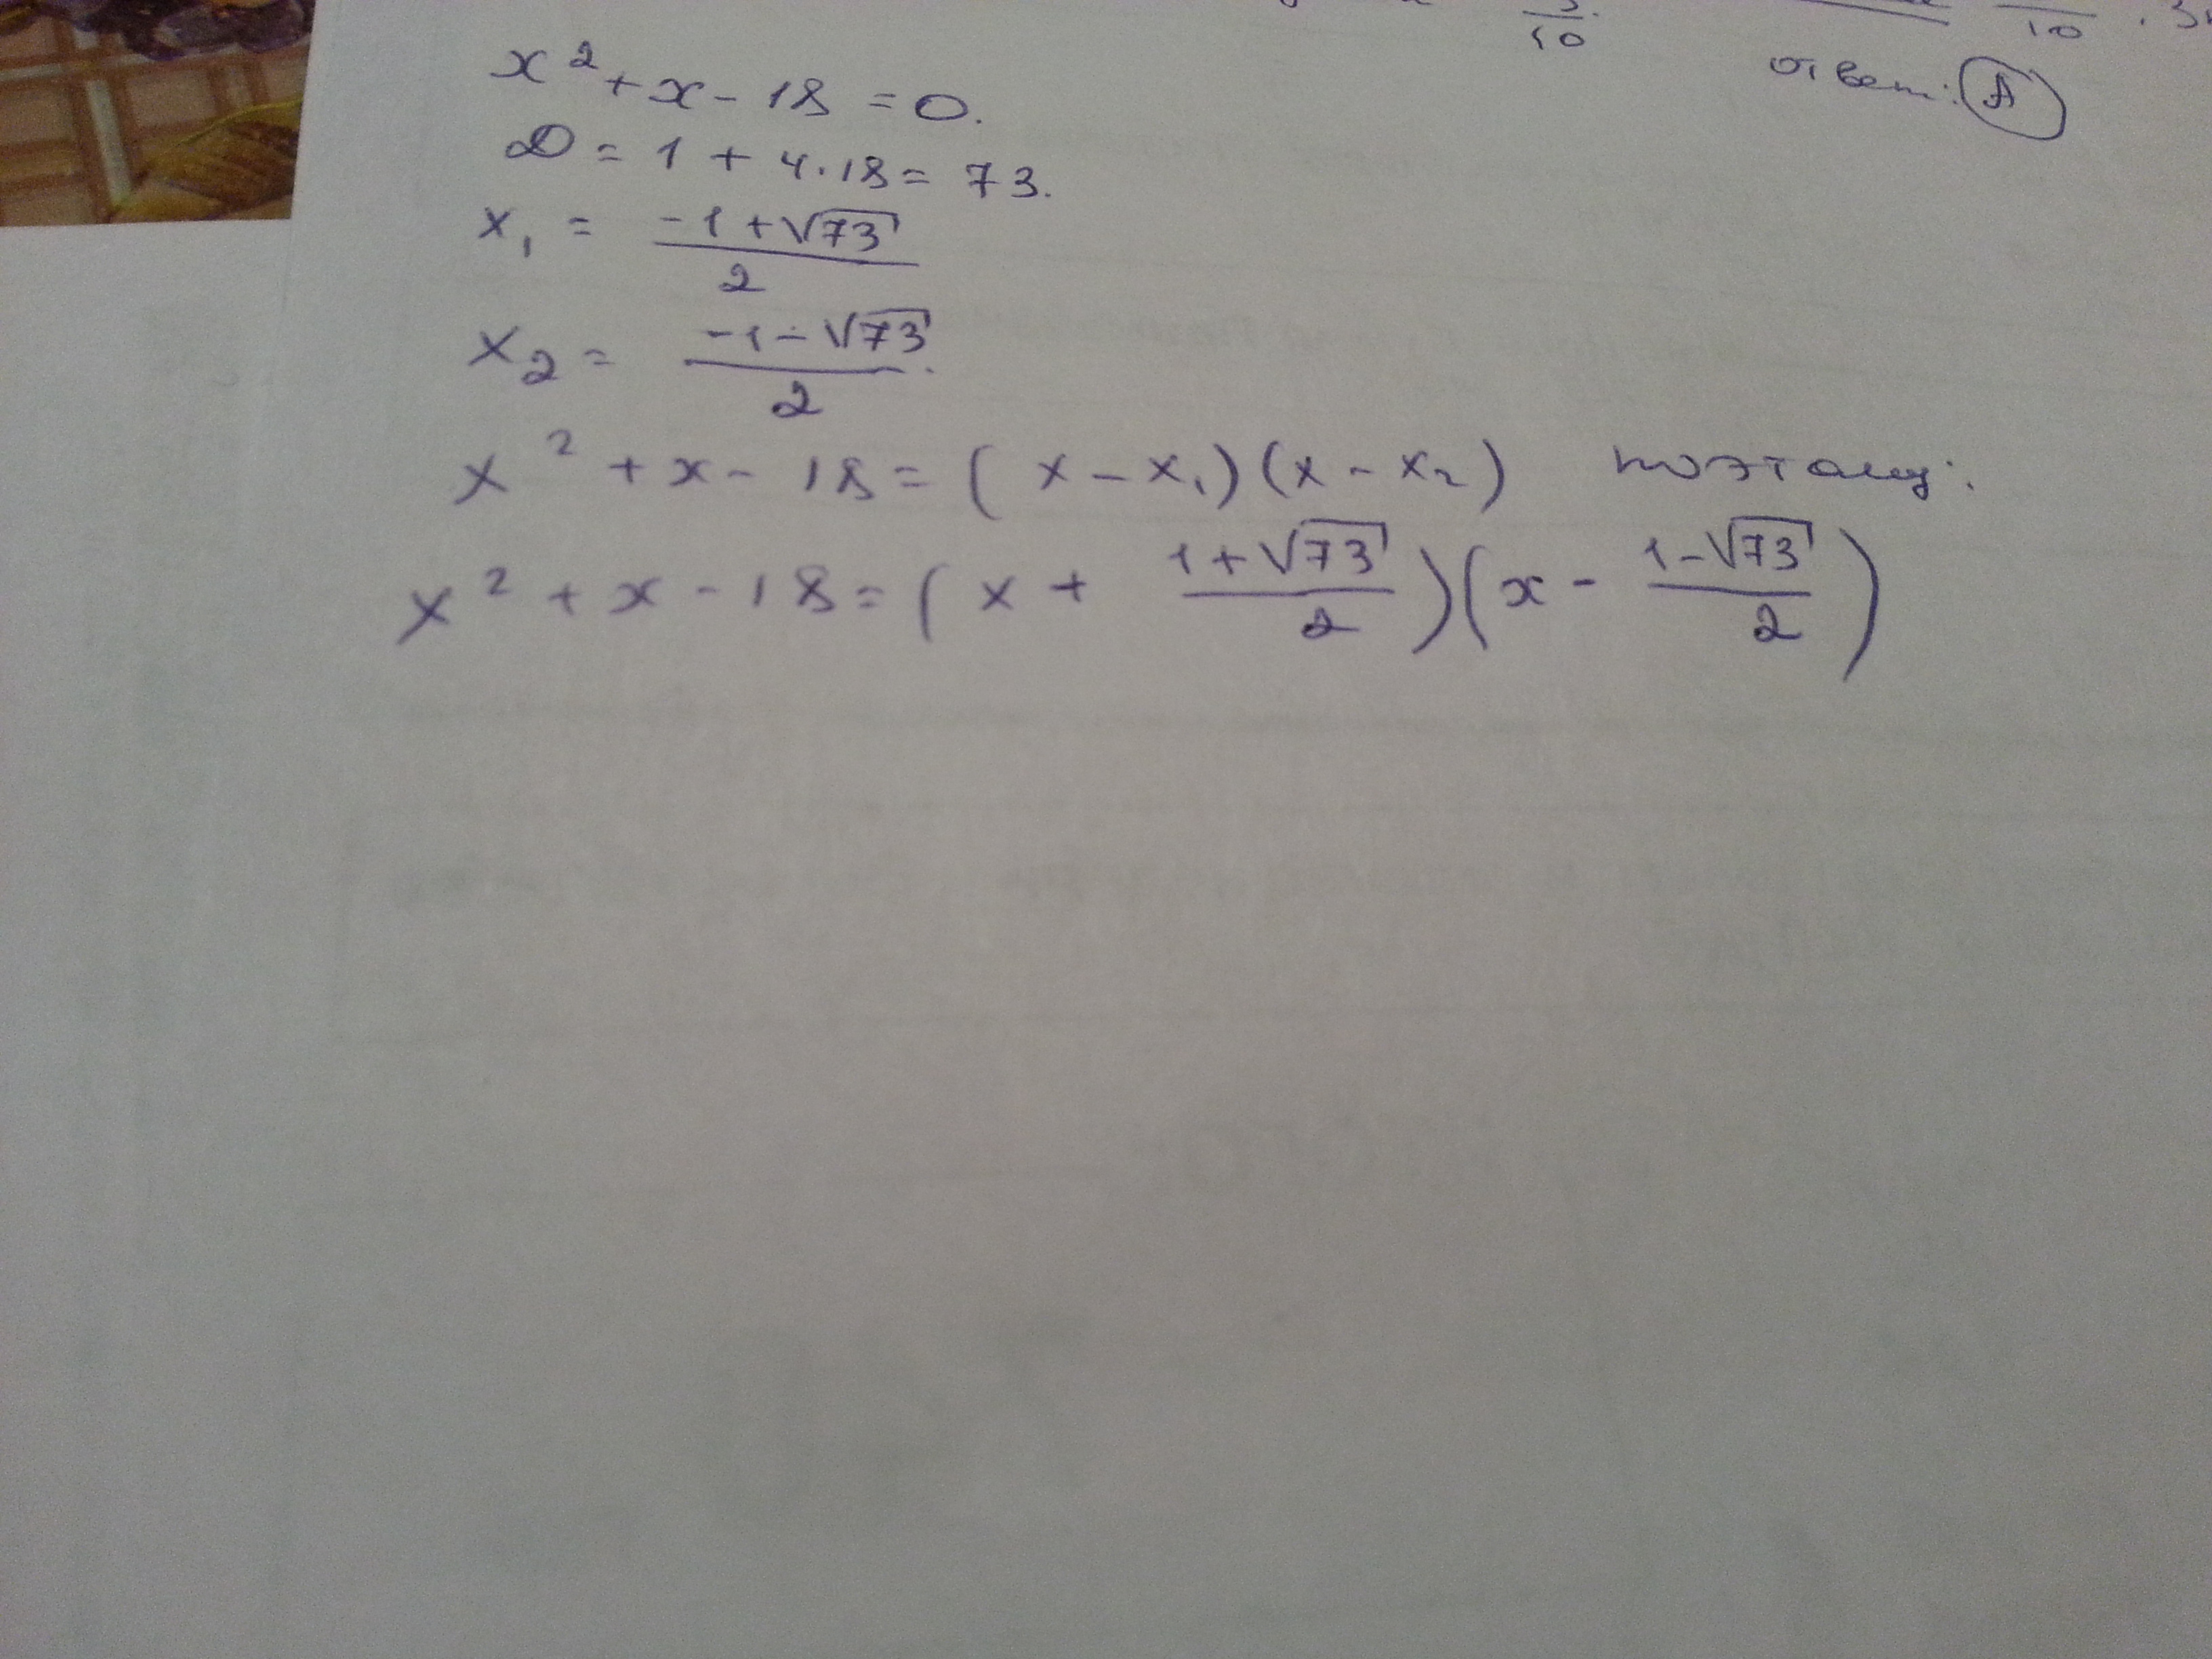 3/10. /10 . 3
ответ: А
x² + x - 18 = 0.
D = 1 + 4·18 = 73.
x₁ = (-1 + √73)/2
x₂ = (-1 - √73)/2.
x² + x - 18 = (x - x₁)(x - x₂) поэтому:
x² + x - 18 = (x + (1 + √73)/2)(x - (1 - √73)/2)